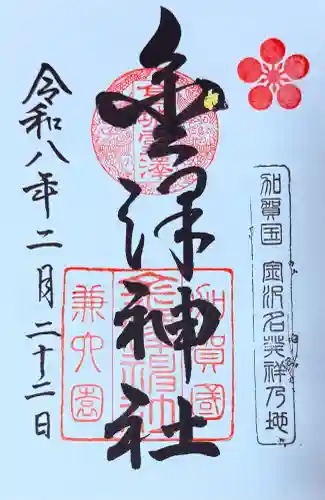 加賀国 金沢名発祥乃地
金沢神社
加賀國
兼六園
令和八年二月二十二日